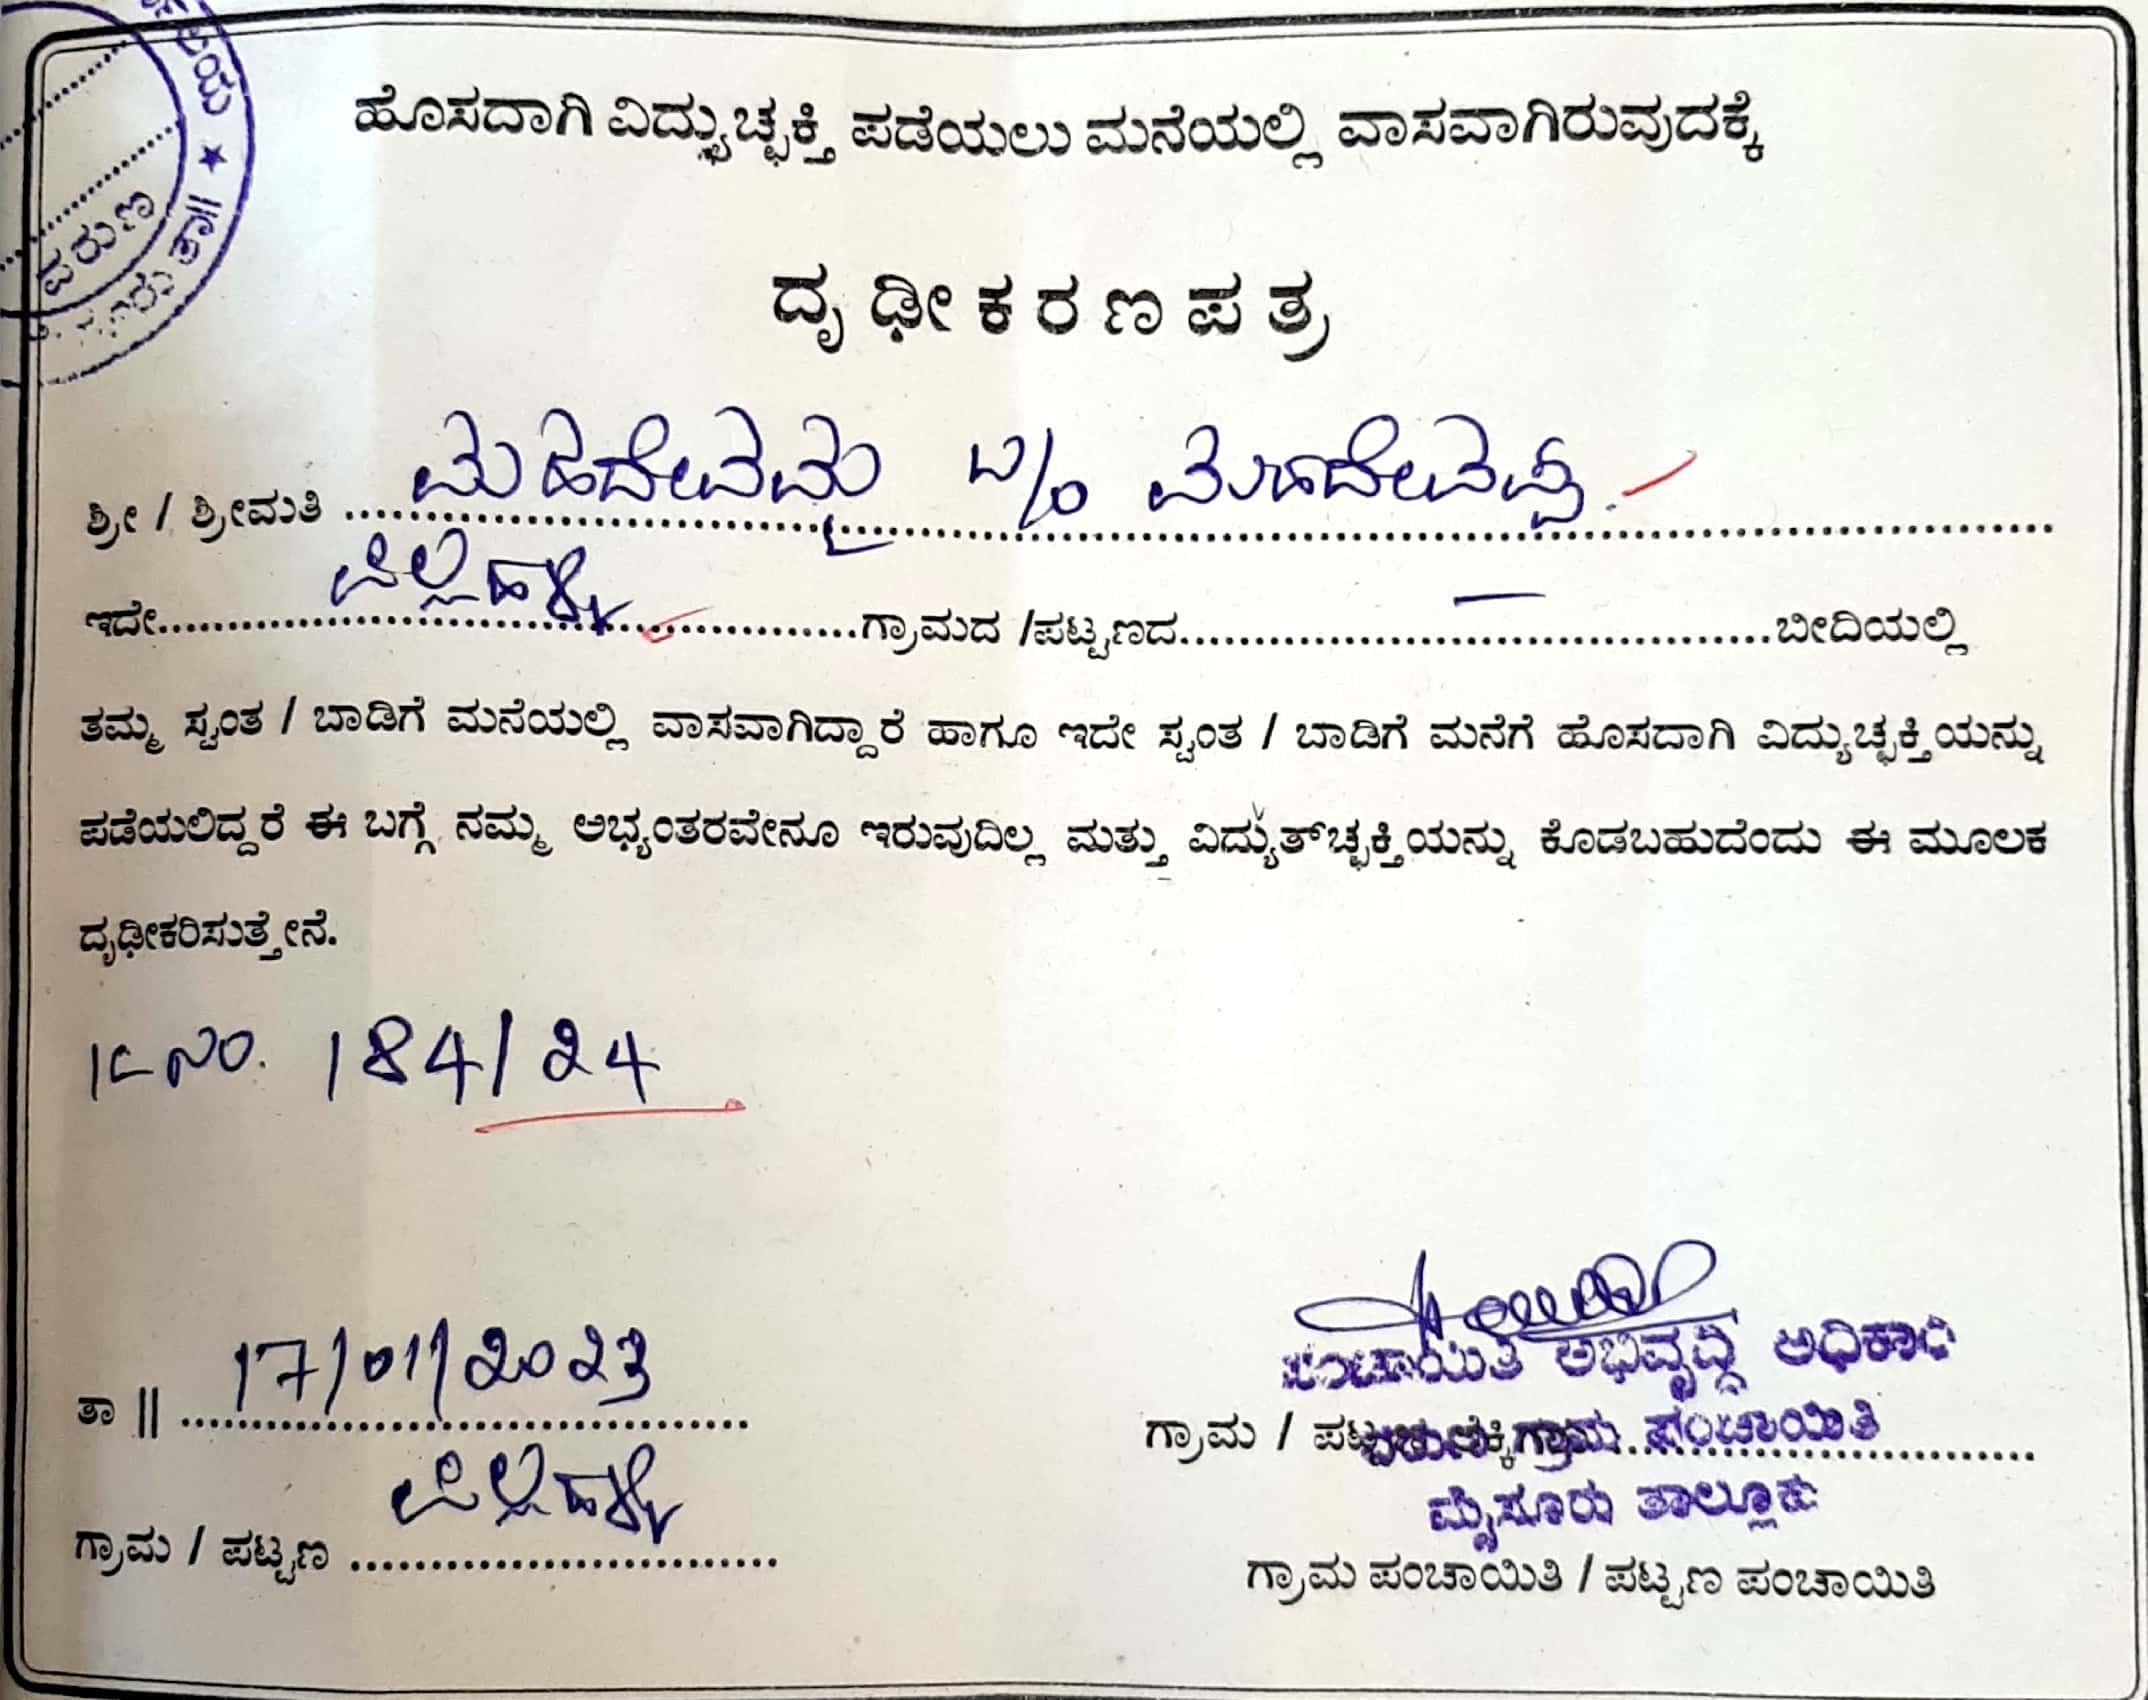 ಲಯ ★
ತಾ||
ವರುಣ
ಹೊಸದಾಗಿ ವಿದ್ಯುಚ್ಛಕ್ತಿ ಪಡೆಯಲು ಮನೆಯಲ್ಲಿ ವಾಸವಾಗಿರುವುದಕ್ಕೆ
ದೃ ಢೀ ಕ ರ ಣ ಪ ತ್ರ
ಶ್ರೀ / ಶ್ರೀಮತಿ ಮಹದೇವಮ್ಮ W/o ಮಹದೇವಪ್ಪ.
ಇದೇ ಪಿಲ್ಲಹಳ್ಳಿ ಗ್ರಾಮದ /ಪಟ್ಟಣದ — ಬೀದಿಯಲ್ಲಿ
ತಮ್ಮ ಸ್ವಂತ / ಬಾಡಿಗೆ ಮನೆಯಲ್ಲಿ ವಾಸವಾಗಿದ್ದಾರೆ ಹಾಗೂ ಇದೇ ಸ್ವಂತ / ಬಾಡಿಗೆ ಮನೆಗೆ ಹೊಸದಾಗಿ ವಿದ್ಯುಚ್ಛಕ್ತಿಯನ್ನು
ಪಡೆಯಲಿದ್ದರೆ ಈ ಬಗ್ಗೆ ನಮ್ಮ ಅಭ್ಯಂತರವೇನೂ ಇರುವುದಿಲ್ಲ ಮತ್ತು ವಿದ್ಯುತ್‌ಚ್ಛಕ್ತಿಯನ್ನು ಕೊಡಬಹುದೆಂದು ಈ ಮೂಲಕ
ದೃಢೀಕರಿಸುತ್ತೇನೆ.
ನಂ. 184/24
ತಾ || 17/01/2023
ಪಂಚಾಯಿತಿ ಅಭಿವೃದ್ಧಿ ಅಧಿಕಾರಿ
ಗ್ರಾಮ / ಗ್ರಾಮ ಪಂಚಾಯಿತಿ
ಮೈಸೂರು ತಾಲ್ಲೂಕು
ಗ್ರಾಮ / ಪಟ್ಟಣ ಪಿಲ್ಲಹಳ್ಳಿ
ಗ್ರಾಮ ಪಂಚಾಯಿತಿ / ಪಟ್ಟಣ ಪಂಚಾಯಿತಿ